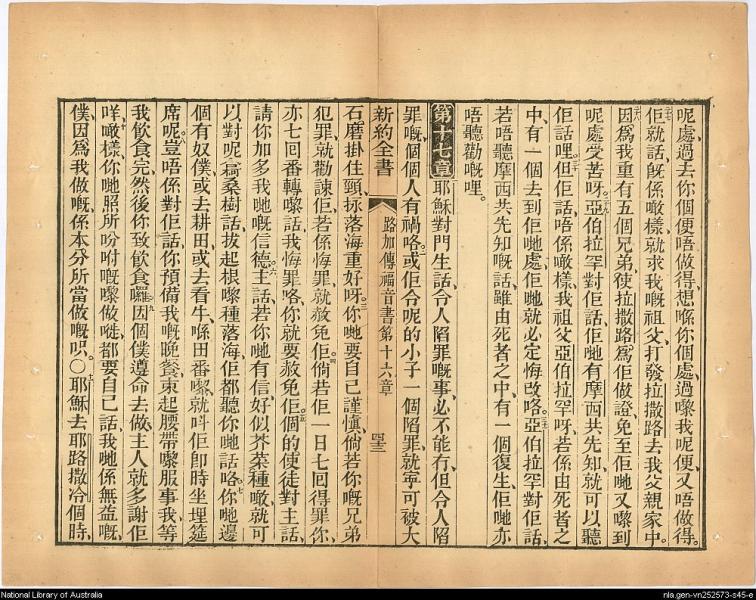 呢處、過去你個便唔做得、想喺你個處、過嚟我呢便、又唔做得。
佢就話、旣係噉樣、就求我嘅祖父、打發拉撒路去我父親家中。
因爲我重有五個兄弟、使拉撒路爲佢做證、免至佢哋又嚟到
呢處受苦呀。亞伯拉罕對佢話、佢哋有摩西共先知、就可以聽
佢話哩。但佢話、唔係噉樣、我祖父亞伯拉罕呀、若係由死者之
中、有一個去到佢哋處、佢哋就必定悔改咯。亞伯拉罕對佢話、
若唔聽摩西共先知嘅話、雖由死者之中、有一個復生、佢哋亦
唔聽勸嘅哩。
第十七章 耶穌對門生話、令人陷罪嘅事、必不能冇、但令人陷
罪嘅、個個人有禍咯。或佢令呢的小子一個陷罪、就寧可被大
新約全書 路加傳福音書第十六章
石磨掛住頸、抌落海重好呀。你哋要自己謹愼、倘若你嘅兄弟
犯罪、就勸諫佢、若係悔罪、就赦免佢。倘若佢一日七回得罪你、
亦七回番轉嚟話、我悔罪咯、你就要赦免佢。個的使徒對主話、
請你加多我哋嘅信德。主話、若你哋有信、好似芥菜種噉、就可
以對呢𣖕桑樹話、拔起根嚟種落海、佢都聽你哋話咯。你哋邊
個有奴僕、或去耕田、或去看牛、喺田番嚟、就呌佢卽時坐埋筵
席呢。豈唔係對佢話、你預備我嘅晚餐、束起腰帶嚟服事我、等
我飲食完、然後你致飲食囉。因個僕遵命去做、主人就多謝佢
咩。噉樣、你哋照所吩咐嘅嚟做嘥、都要自己話、我哋係無益嘅
僕、因爲我做嘅、係本分所當做嘅呮。○耶穌去耶路撒冷個時、
National Library of Australia
nla.gen-vn252573-s45-e